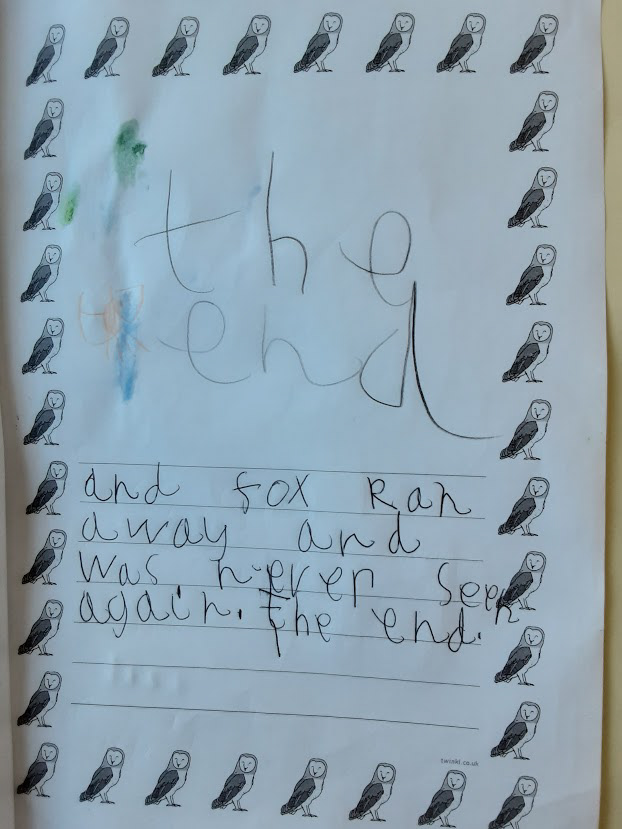 the
end
and fox Ran
away and
was never seen
again. The end.
twinkl.co.uk